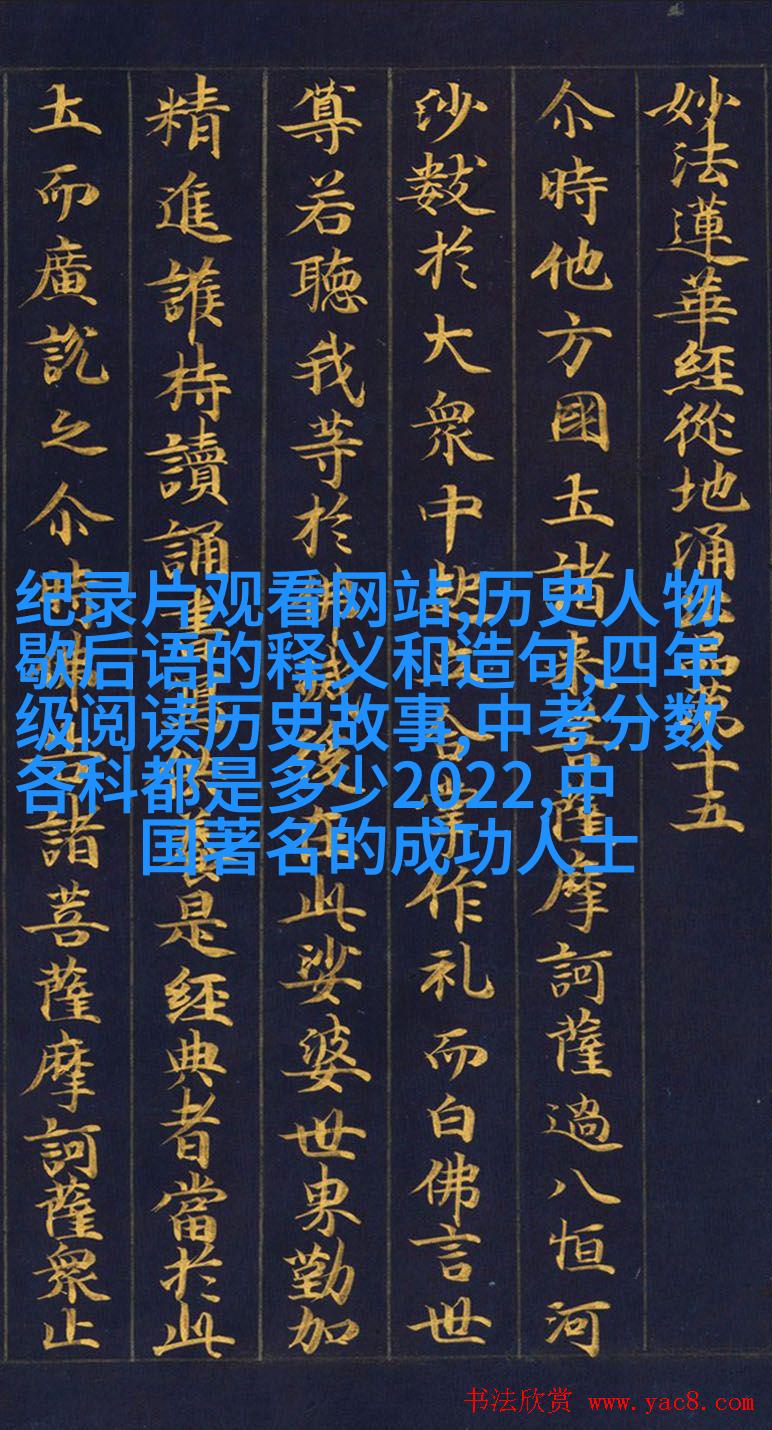 妙法蓮華經從地涌品第十五
尒時他方國土諸來菩薩摩訶薩過八恒河
沙數於大眾中合掌作礼而白佛言世
尊若聽我等於佛後在此娑婆世界勤加
精進護持讀誦書養是經典者當於此
土而廣說之尒時佛諸菩薩摩訶薩眾止
纪录片观看网站,历史人物
歇后语的释义和造句,四年
级阅读历史故事,中考分数
各科都是多少2022,中
国著名的成功人士
书法欣赏 www.yac8.com